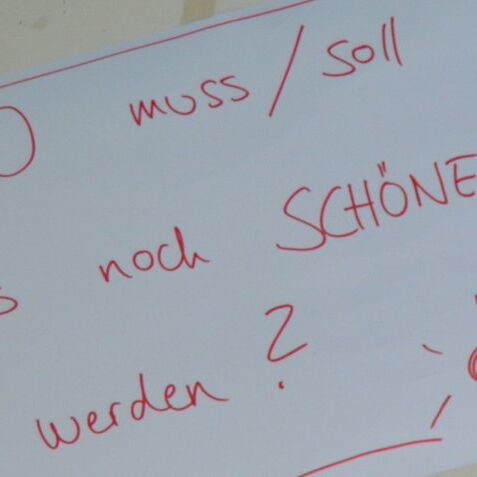 O muss / soll
s noch SCHÖNE
werden ?